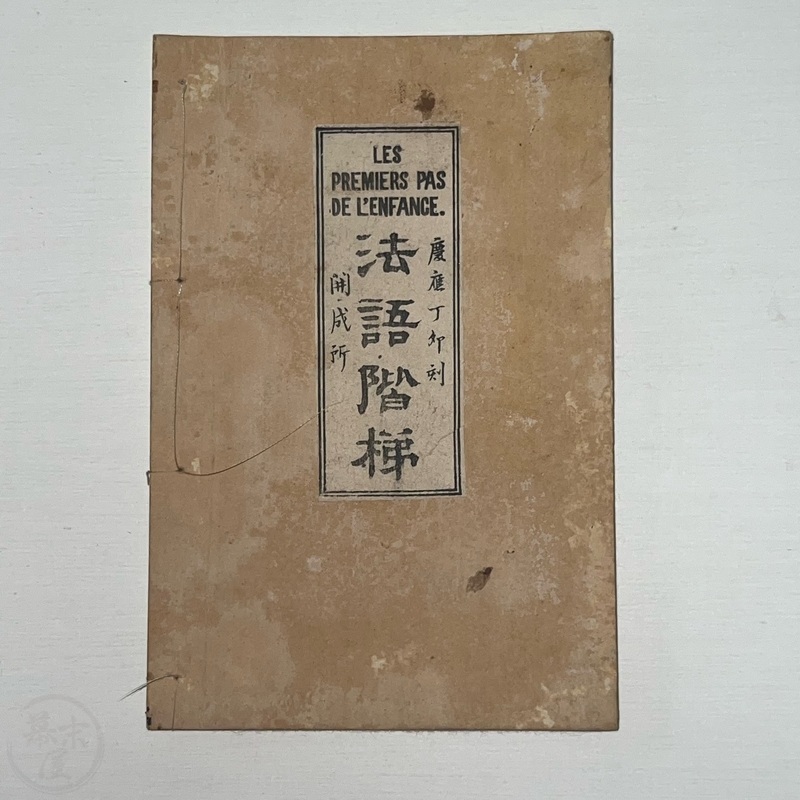 LES
PREMIERS PAS
DE L'ENFANCE.
慶應丁卯刻
法語階梯
開成所
幕末屋